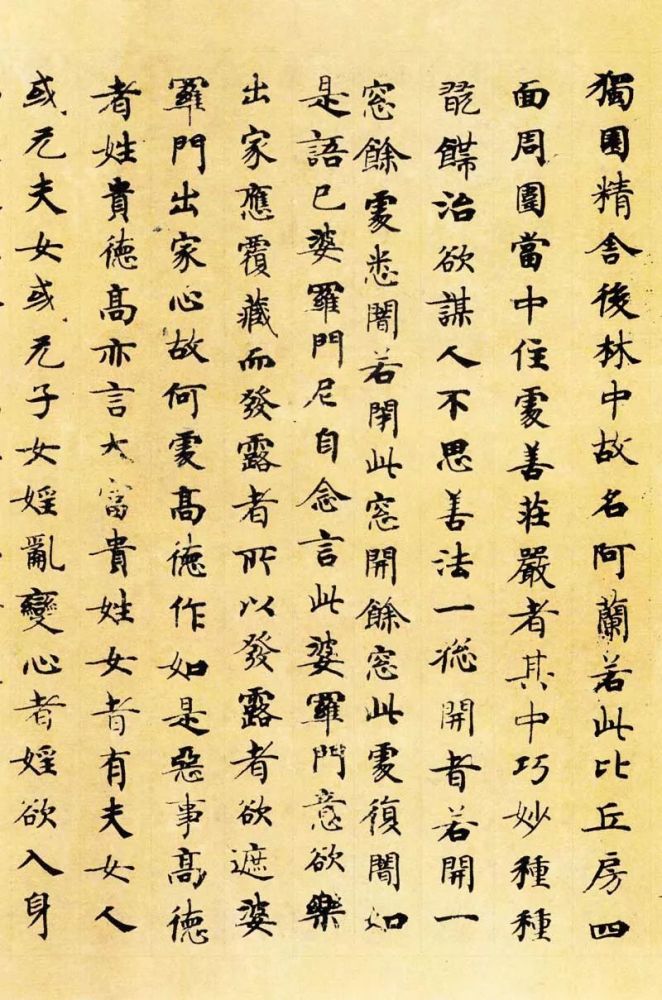 獨園精舍後林中故名阿蘭若此比丘房四
面周圍當中住處善莊嚴者其中巧妙種種
治欲謀人不思善法一種開者若開一
窓餘處悉闇若閉此窓開餘窓此處復闇如
是語已婆羅門尼自念言此婆羅門意欲樂
出家應覆藏而發露者所以發露者欲遮婆
羅門出家心故何處高德作如是惡事高德
者姓貴德高亦言大富貴姓女者有夫女人
或无夫女或无子女婬亂變心者婬欲入身